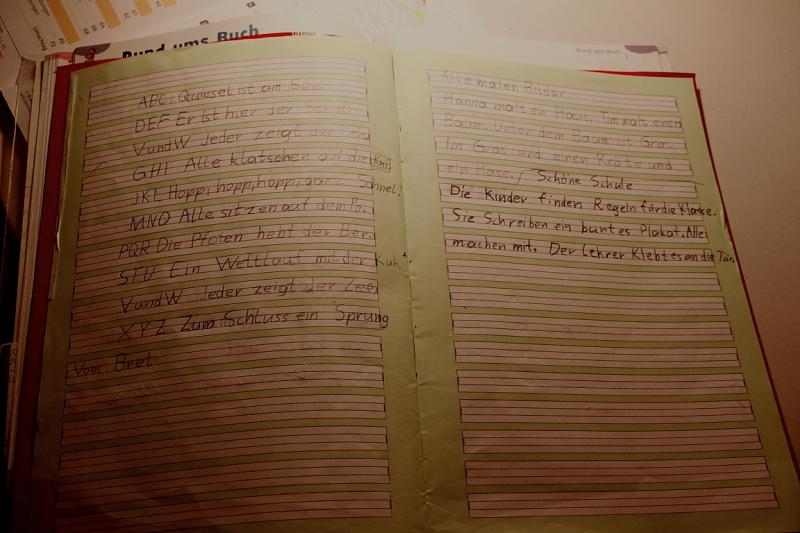 Rund ums Buch
Rund ums Buch
ABC Quiesel ist am See.
DEF Er ist hier der
VundW Jeder zeigt der
GHI Alle klatschen auf die Knie
JKL Hopp, hopp, hopp, ganz Schnel.
MNO Alle sitzen auf dem Po.
PQR Die Pfoten hebt der Ber.
STU Ein Wettlauf mit der Kuh.
VundW Jeder zeigt der Zee
XYZ Zum Schluss ein Sprung
Vom Bret
Alle malen Bilder
Hanna malt ein Haus. Tim malt einen
Baum. Unter dem Baum ist Gras.
Im Gras sind einen Kröte und
ein Hase. / Schöne Schule
Die Kinder finden Regeln fürdie Klasse.
Sie Schreiben ein buntes Plakat. Alle
machen mit. Der Lehrer Klebt es an die Tür.